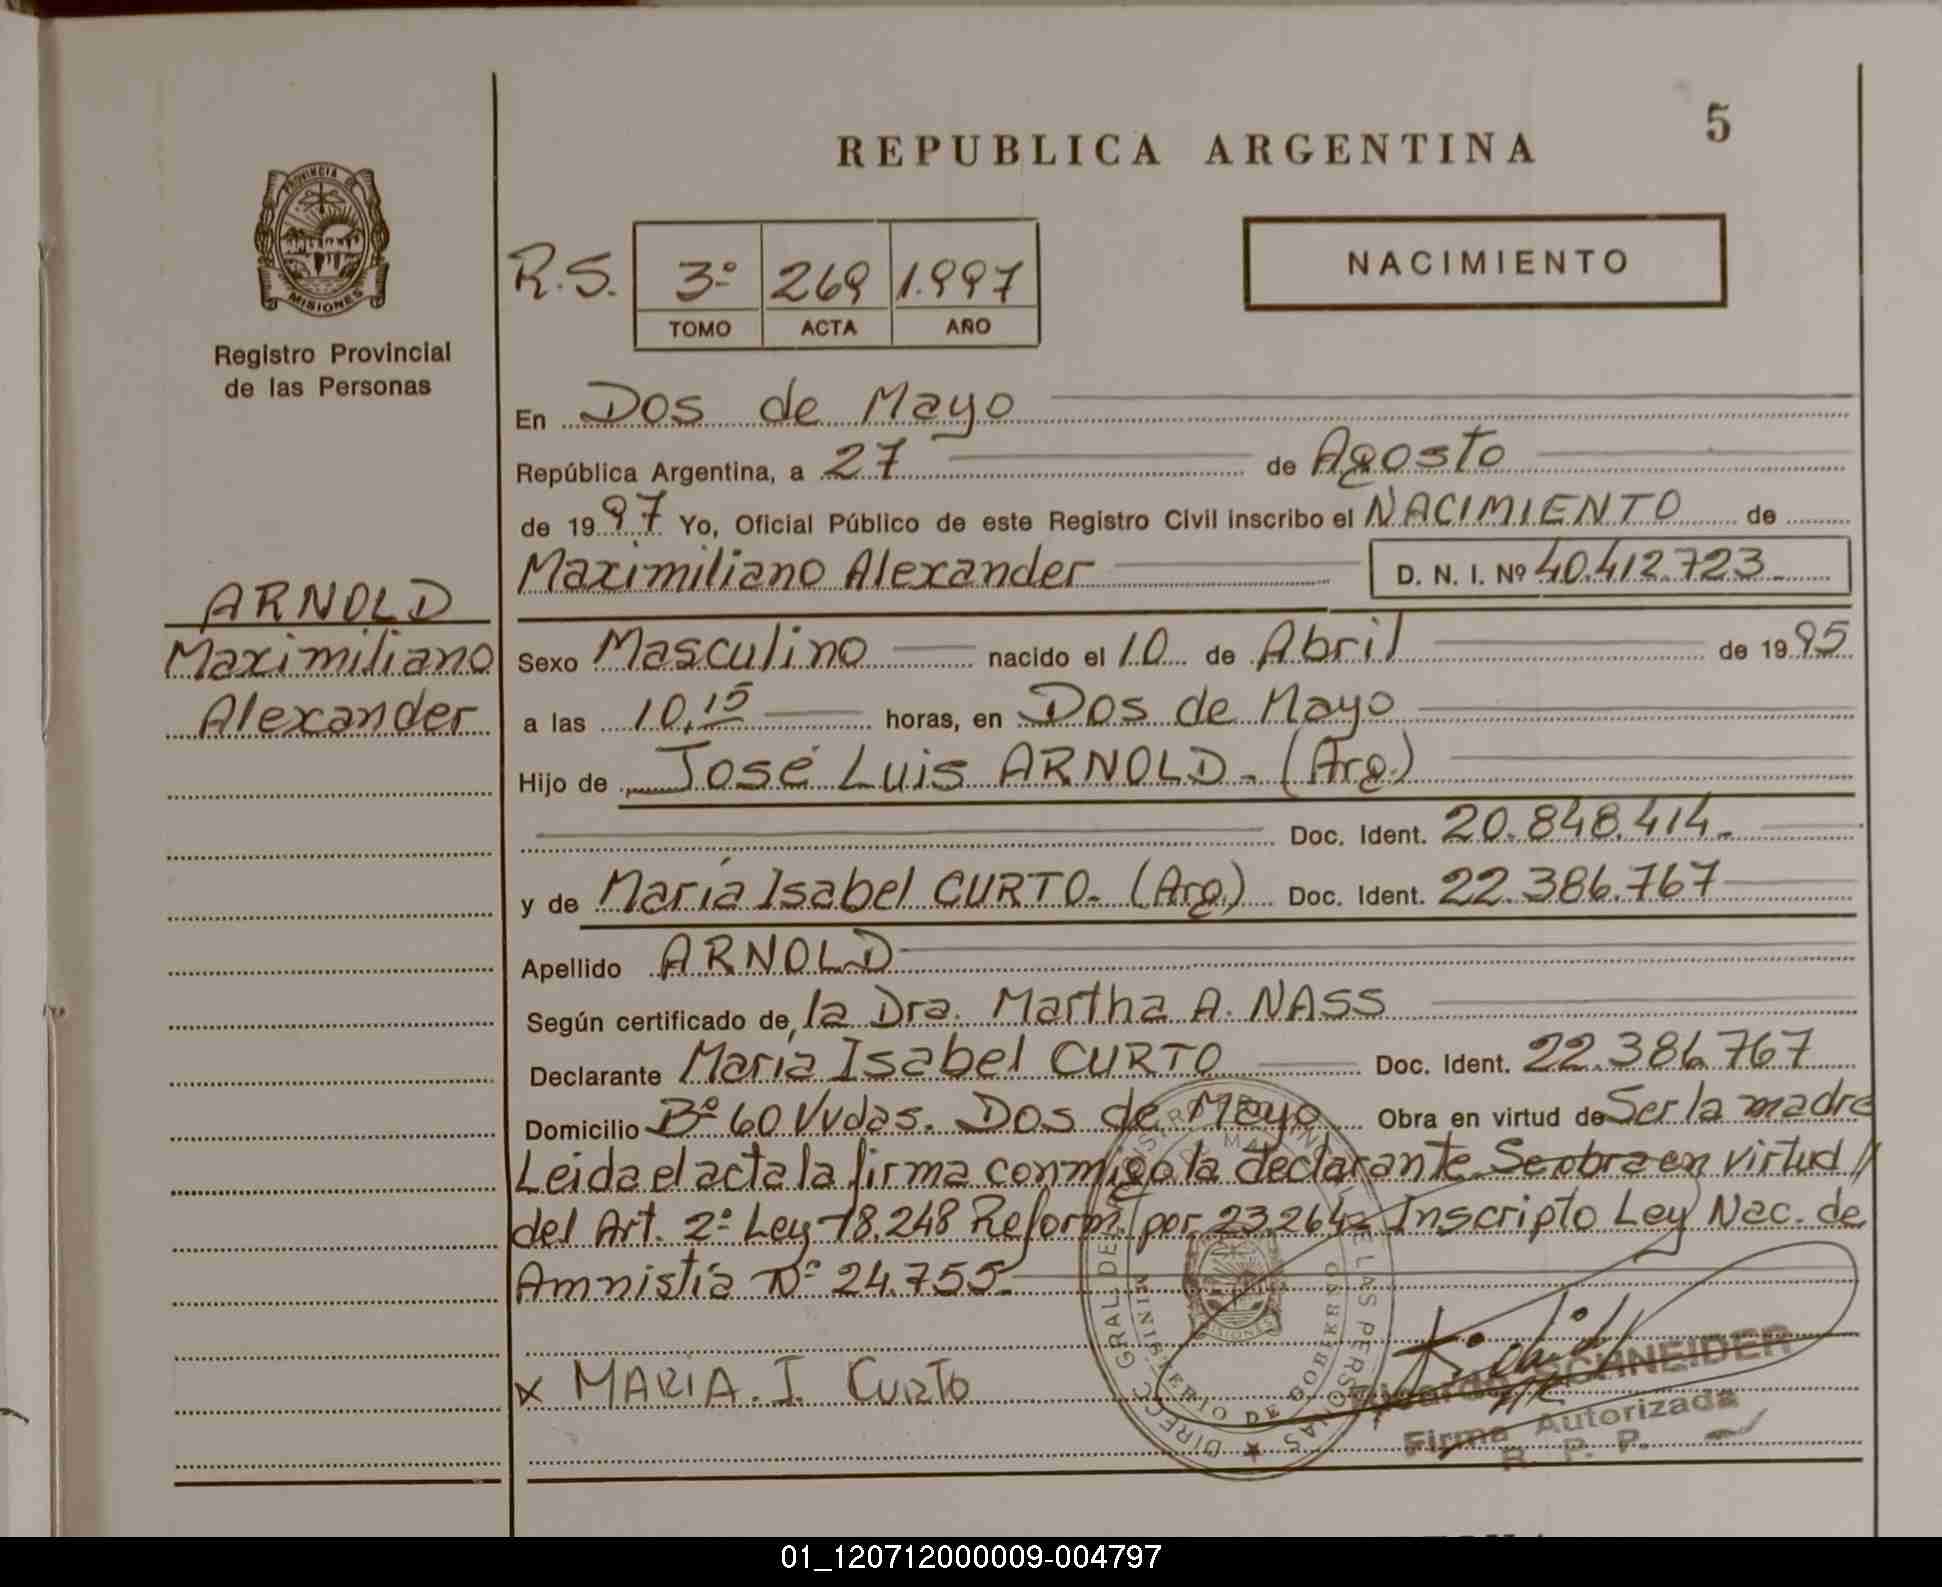 5
REPUBLICA ARGENTINA
PROVINCIA DE
MISIONES
Registro Provincial
de las Personas
R.S. 3º 269 1.997
TOMO ACTA AÑO
NACIMIENTO
En Dos de Mayo
República Argentina, a 27 de Agosto
de 1997 Yo, Oficial Público de este Registro Civil inscribo el NACIMIENTO de
Maximiliano Alexander D. N. I. Nº 40.412.723.
ARNOLD
Maximiliano
Alexander
Sexo Masculino nacido el 10 de Abril de 1995
a las 10,15 horas, en Dos de Mayo
Hijo de José Luis ARNOLD. (Arg.)
Doc. Ident. 20.848.414.
y de María Isabel CURTO. (Arg.) Doc. Ident. 22.386.767
Apellido ARNOLD
Según certificado de, la Dra. Martha A. NASS
Declarante María Isabel CURTO Doc. Ident. 22.386.767
Domicilio Bº 60 Vvdas. Dos de Mayo Obra en virtud de Ser la madre
Leida el acta la firma conmigo la declarante. Se obra en virtud //
del Art. 2º Ley 18.248 Reform. por 23.264= Inscripto Ley Nac. de
Amnistía Nº 24.755.
x MARIA. I. CURTO
DIRECC. GRAL. DEL DE LAS PERSONAS
MINISTERIO DE GOBIERNO
MISIONES
Ricardo SCHNEIDER
Firma Autorizada
R. P. P.
01_120712000009-004797